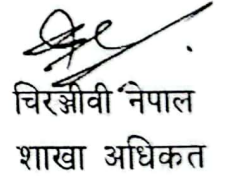 चिरञ्जीवी नेपाल
शाखा अधिकत